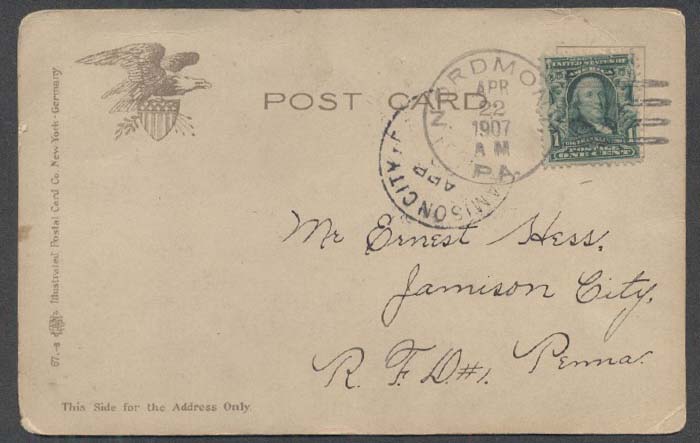 POST CARD
NORDMONT
APR
22
1907
AM
PA.
JAMISON CITY, P
APR
UNITED STATES OF
AMERICA
1 1
POSTAGE
ONE CENT
Mr Ernest Hess.
Jamison City.
R. F. D#1. Penna.
67.-8 Illustrated Postal Card Co. New York - Germany
This Side for the Address Only.